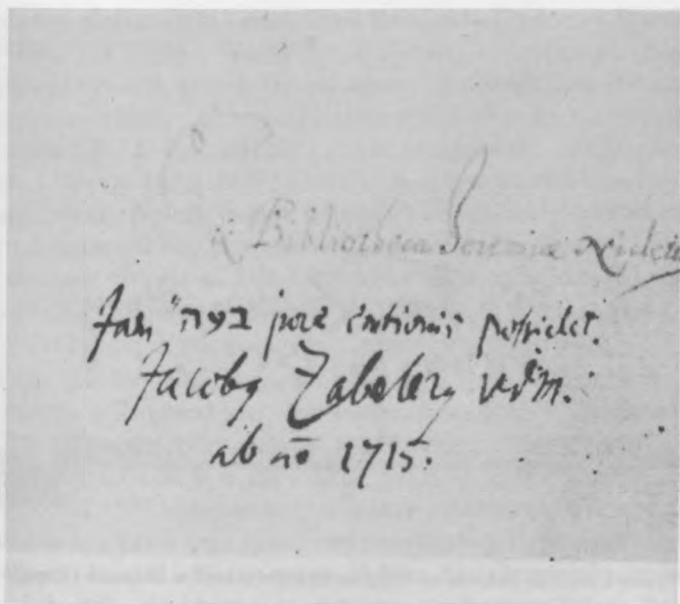 Bibliotheca Jeremiæ
Jam בעזה״ jure emtionis possidet.
Jacobꝰ Zabelerꝰ VDM.
ab aō 1715.